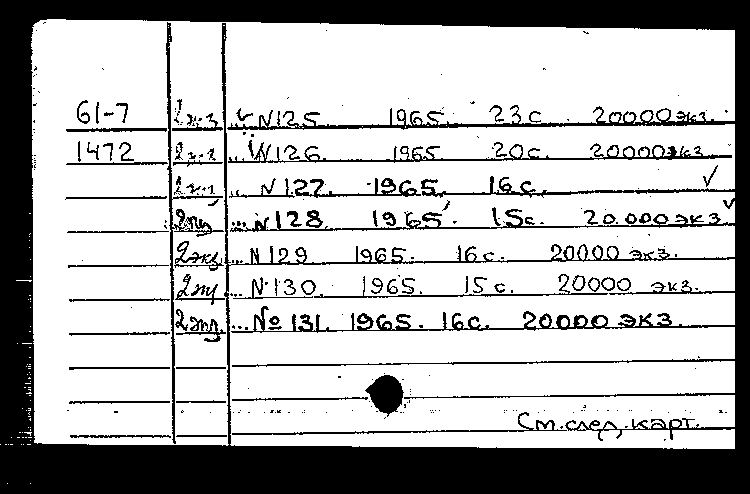 61-7 2экз ... N125 1965. 23с. 20000экз.
1472 2экз ... N126 1965 20с. 20000экз
2экз ... N127. 1965. 16с. ✓
2экз ... N128 1965. 15с. 20.000экз ✓
2экз ... N129 1965. 16с. 20000 экз.
2экз ... N130. 1965. 15с. 20000 экз.
2экз ... № 131. 1965. 16с. 20000 экз.
См. след. карт.